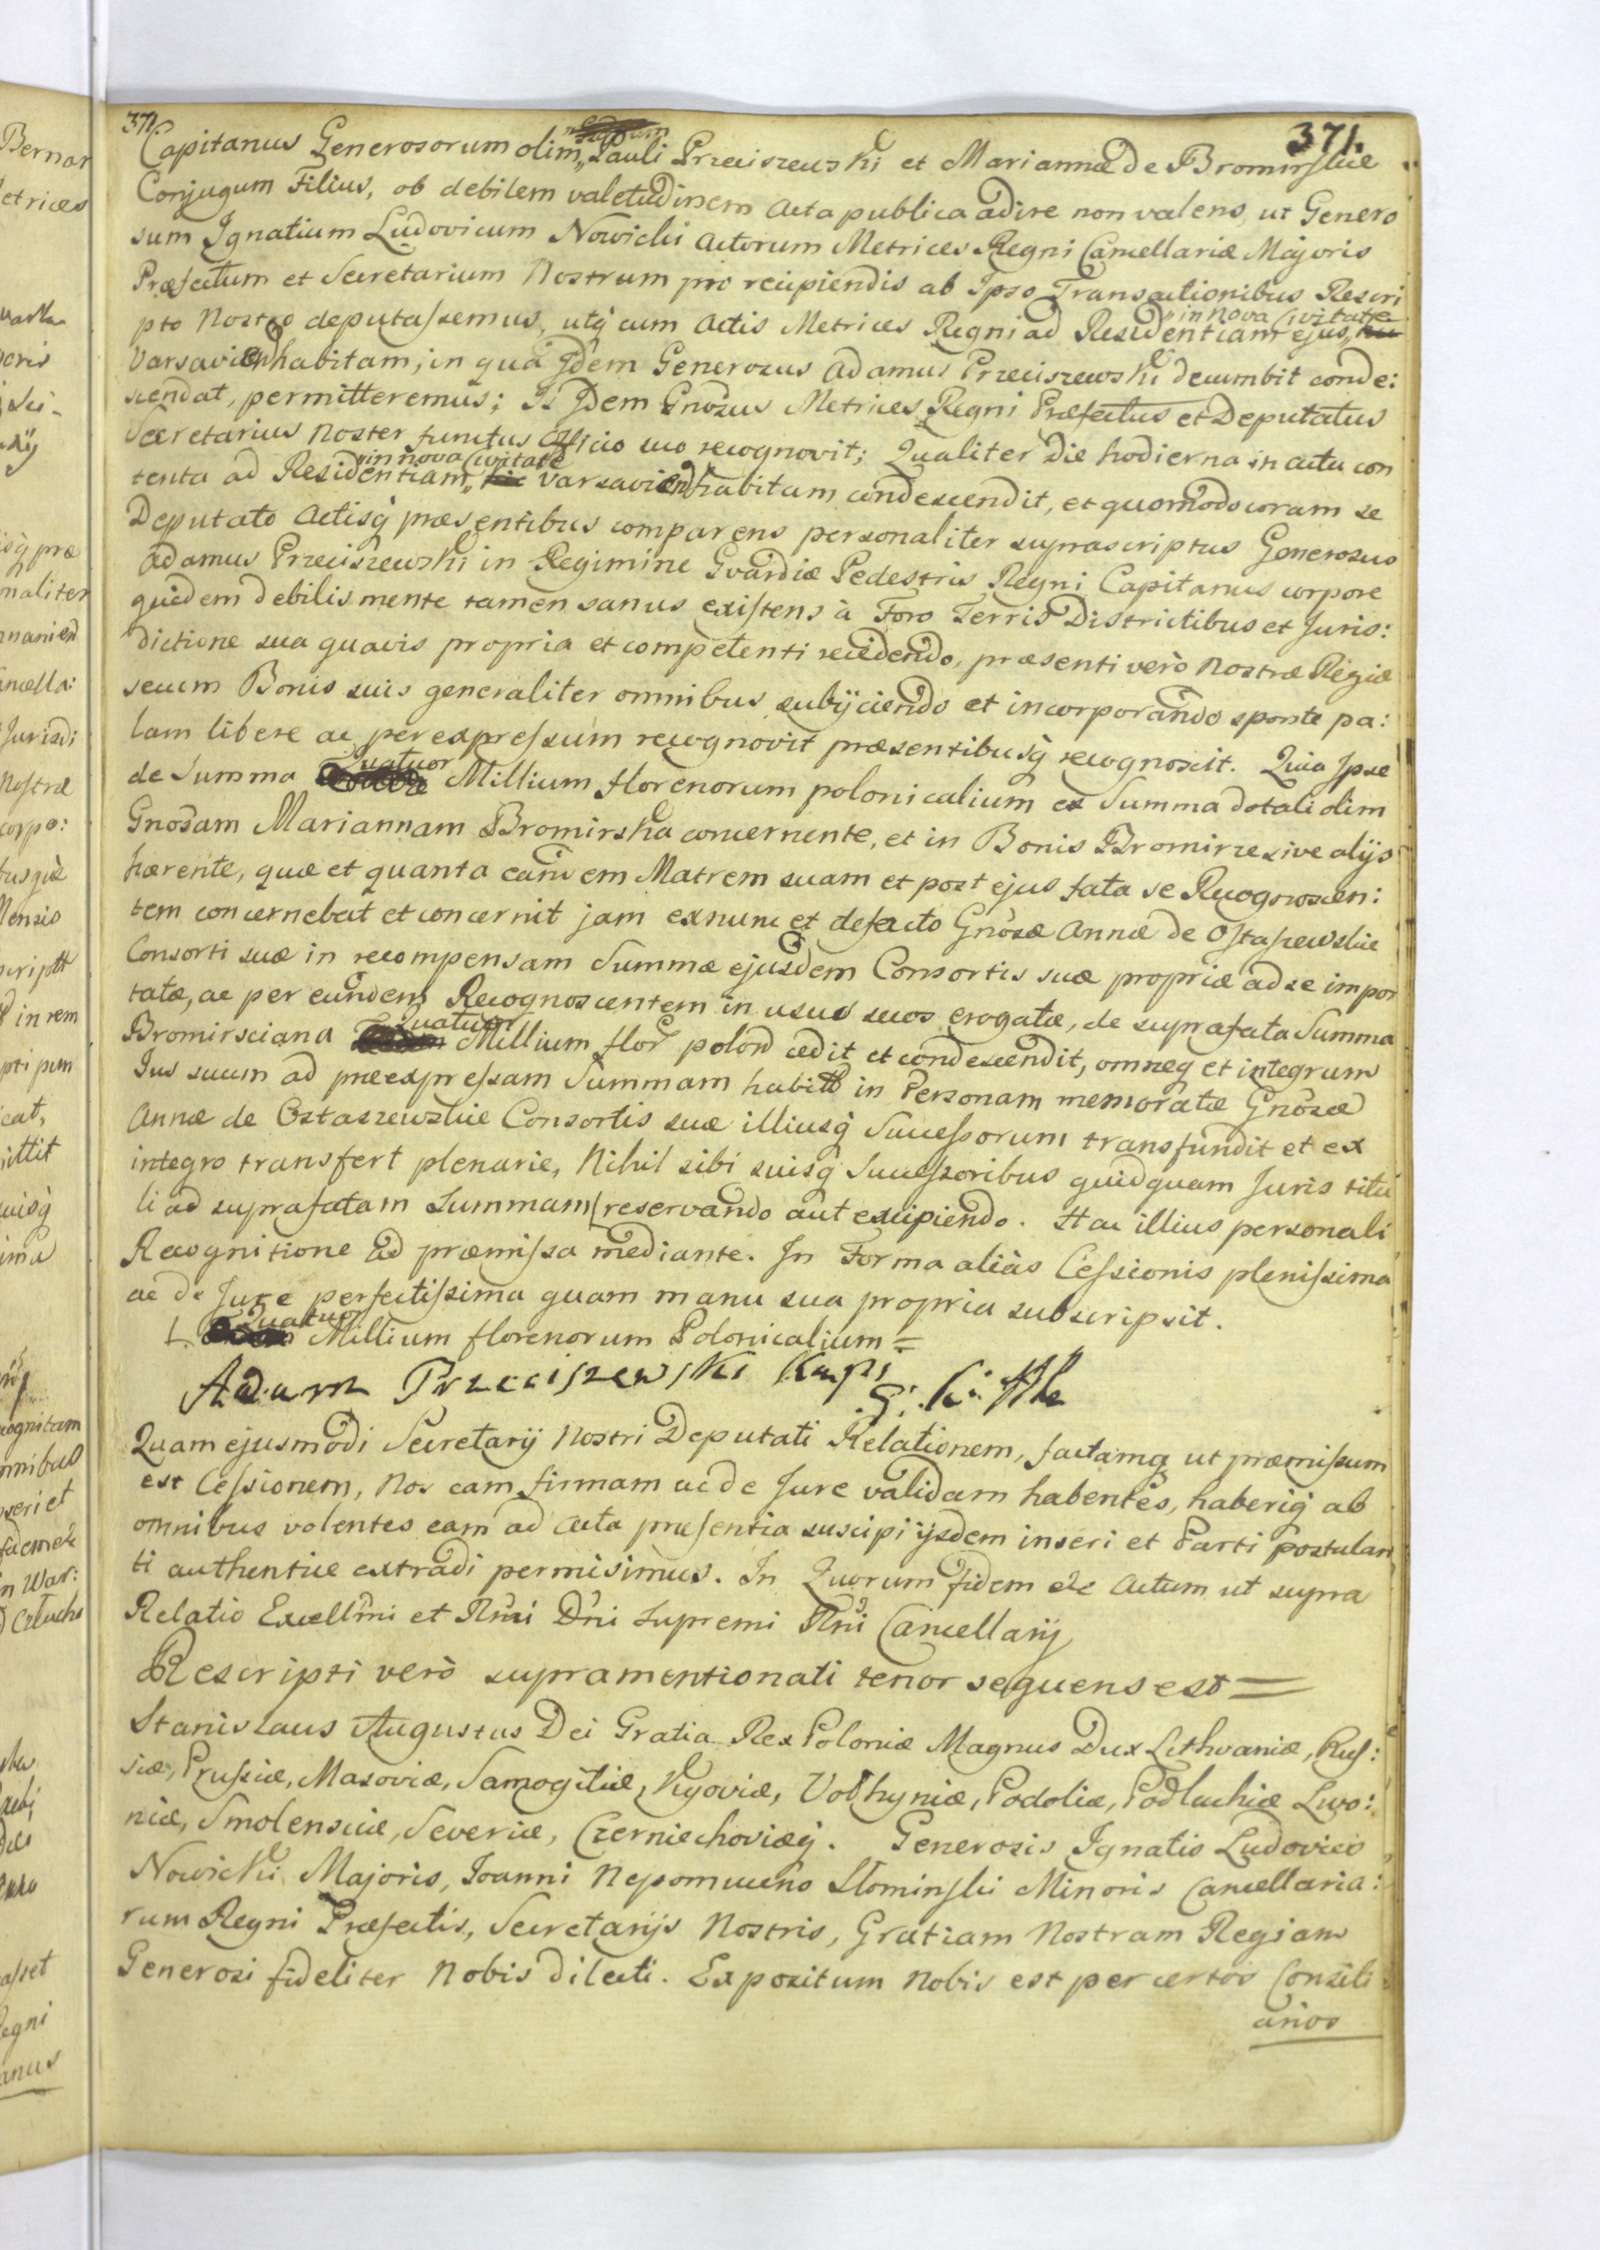 371. 371.
Capitanus Generosorum olim Pauli Przeciszewski et Mariannæ de Bromirskie
Conjugum Filius, ob debilem valetudinem Acta publica adire non valens, ut Genero
sum Ignatium Ludovicum Nowicki Actorum Metrices Regni Cancellariæ Majoris
Præfectum et Secretarium Nostrum pro recipiendis ab Ipso Transactionibus Rescri
pto Nostro deputassemus, utq̄ cum Actis Metrices Regni ad Residentiam ejus, in Nova Civitate
Varsavien habitam, in qua Idem Generosus Adamus Przeciszewski decumbit conde:
scendat, permitteremus; Is Idem Gnosus Metrices Regni Præfectus et Deputatus
Secretarius Noster functus Officio suo recognovit; Qualiter Die hodierna in actu con
tenta ad Residentiam in nova Civitate Varsavien habitam condescendit, et quomodo coram se
Deputato Actisq̄ præsentibus comparens personaliter suprascriptus Generosus
Adamus Przeciszewski in Regimine Gvardiæ Pedestris Regni Capitanus corpore
quidem debilis mente tamen sanus existens à Foro Terris Districtibus et Juris:
dictione sua quavis propria et competenti recedendo, præsenti verò Nostræ Regiæ
secum Bonis suis generaliter omnibus subijciendo et incorporando sponte pa:
lam libere ac per expressum recognovit præsentibusq̄ recognoscit. Quia Ipse
de Summa Quatuor Millium florenorum polonicalium ex Summa dotali olim
Gnosam Mariannam Bromirska concernente, et in Bonis Bromirze sive alijs
hærente, quæ et quanta eandem Matrem suam et post ejus fata se Recognoscen:
tem concernebat et concernit jam exnunc et defacto Gnosæ Annæ de Ostaszewskie
Consorti suæ in recompensam Summæ ejusdem Consortis suæ propriæ ad se impor
tatæ, ac per eundem Recognoscentem in usus suos erogatæ, de suprafata Summa
Bromirsciana Quatuor Millium flor polon cedit et condescendit, omneq et integrum
Jus suum ad præexpressam Summam habitt in Personam memoratæ Gnosæ
Annæ de Ostaszewskie Consortis suæ illiusq̄ Successorum transfundit et ex
integro transfert plenarie, Nihil sibi suisq̄ Successoribus quidquam Juris titu
li ad suprafatam Summam reservando aut excipiendo. Hac illius personali
Recognitione ad præmissa mediante. In Forma aliàs Cessionis plenissima
ac de Jure perfectissima quam manu sua propria subscripsit.
L. Quatuor Millium florenorum Polonicalium =
Adam Przeciszewski Kapi
Quam ejusmodi Secretarij Nostri Deputati Relationem, factamq ut præmissum
est Cessionem, Nos eam firmam ac de Jure validam habentes, haberiq̄ ab
omnibus volentes eam ad Acta præsentia suscipi ijsdem inseri et Parti postulan
ti authentice extradi permisimus. In Quorum fidem etc Actum ut supra
Relatio Excellmi et Rmi Dni Supremi Rni Cancellarij
Rescripti verò supramentionati tenor sequens est =
Stanislaus Augustus Dei Gratia Rex Poloniæ Magnus Dux Lithvaniæ, Rus:
siæ, Prussiæ, Masoviæ, Samogitiæ, Kyoviæ, Volhyniæ, Podoliæ, Podlachiæ Livo:
niæ, Smolensciæ, Severiæ, Czerniechoviæq̄. Generosis Ignatio Ludovico
Nowicki Majoris, Joanni Nepomuceno Słominski Minoris Cancellaria:
rum Regni Præfectis, Secretarijs Nostris, Gratiam Nostram Regiam
Generosi fideliter Nobis dilecti. Expositum Nobis est per certos Consili
arios